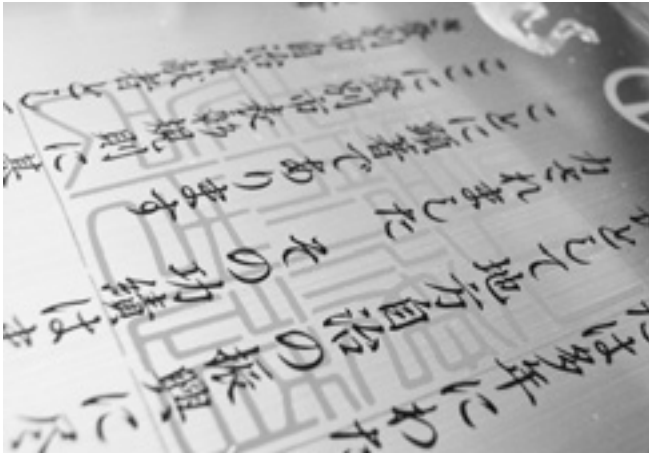 は多年にわた
として地方自治の振興に尽
力されました その功績はま
ことに顕著であります
ここに登別市表彰規則に
登別市自治貢献者とし